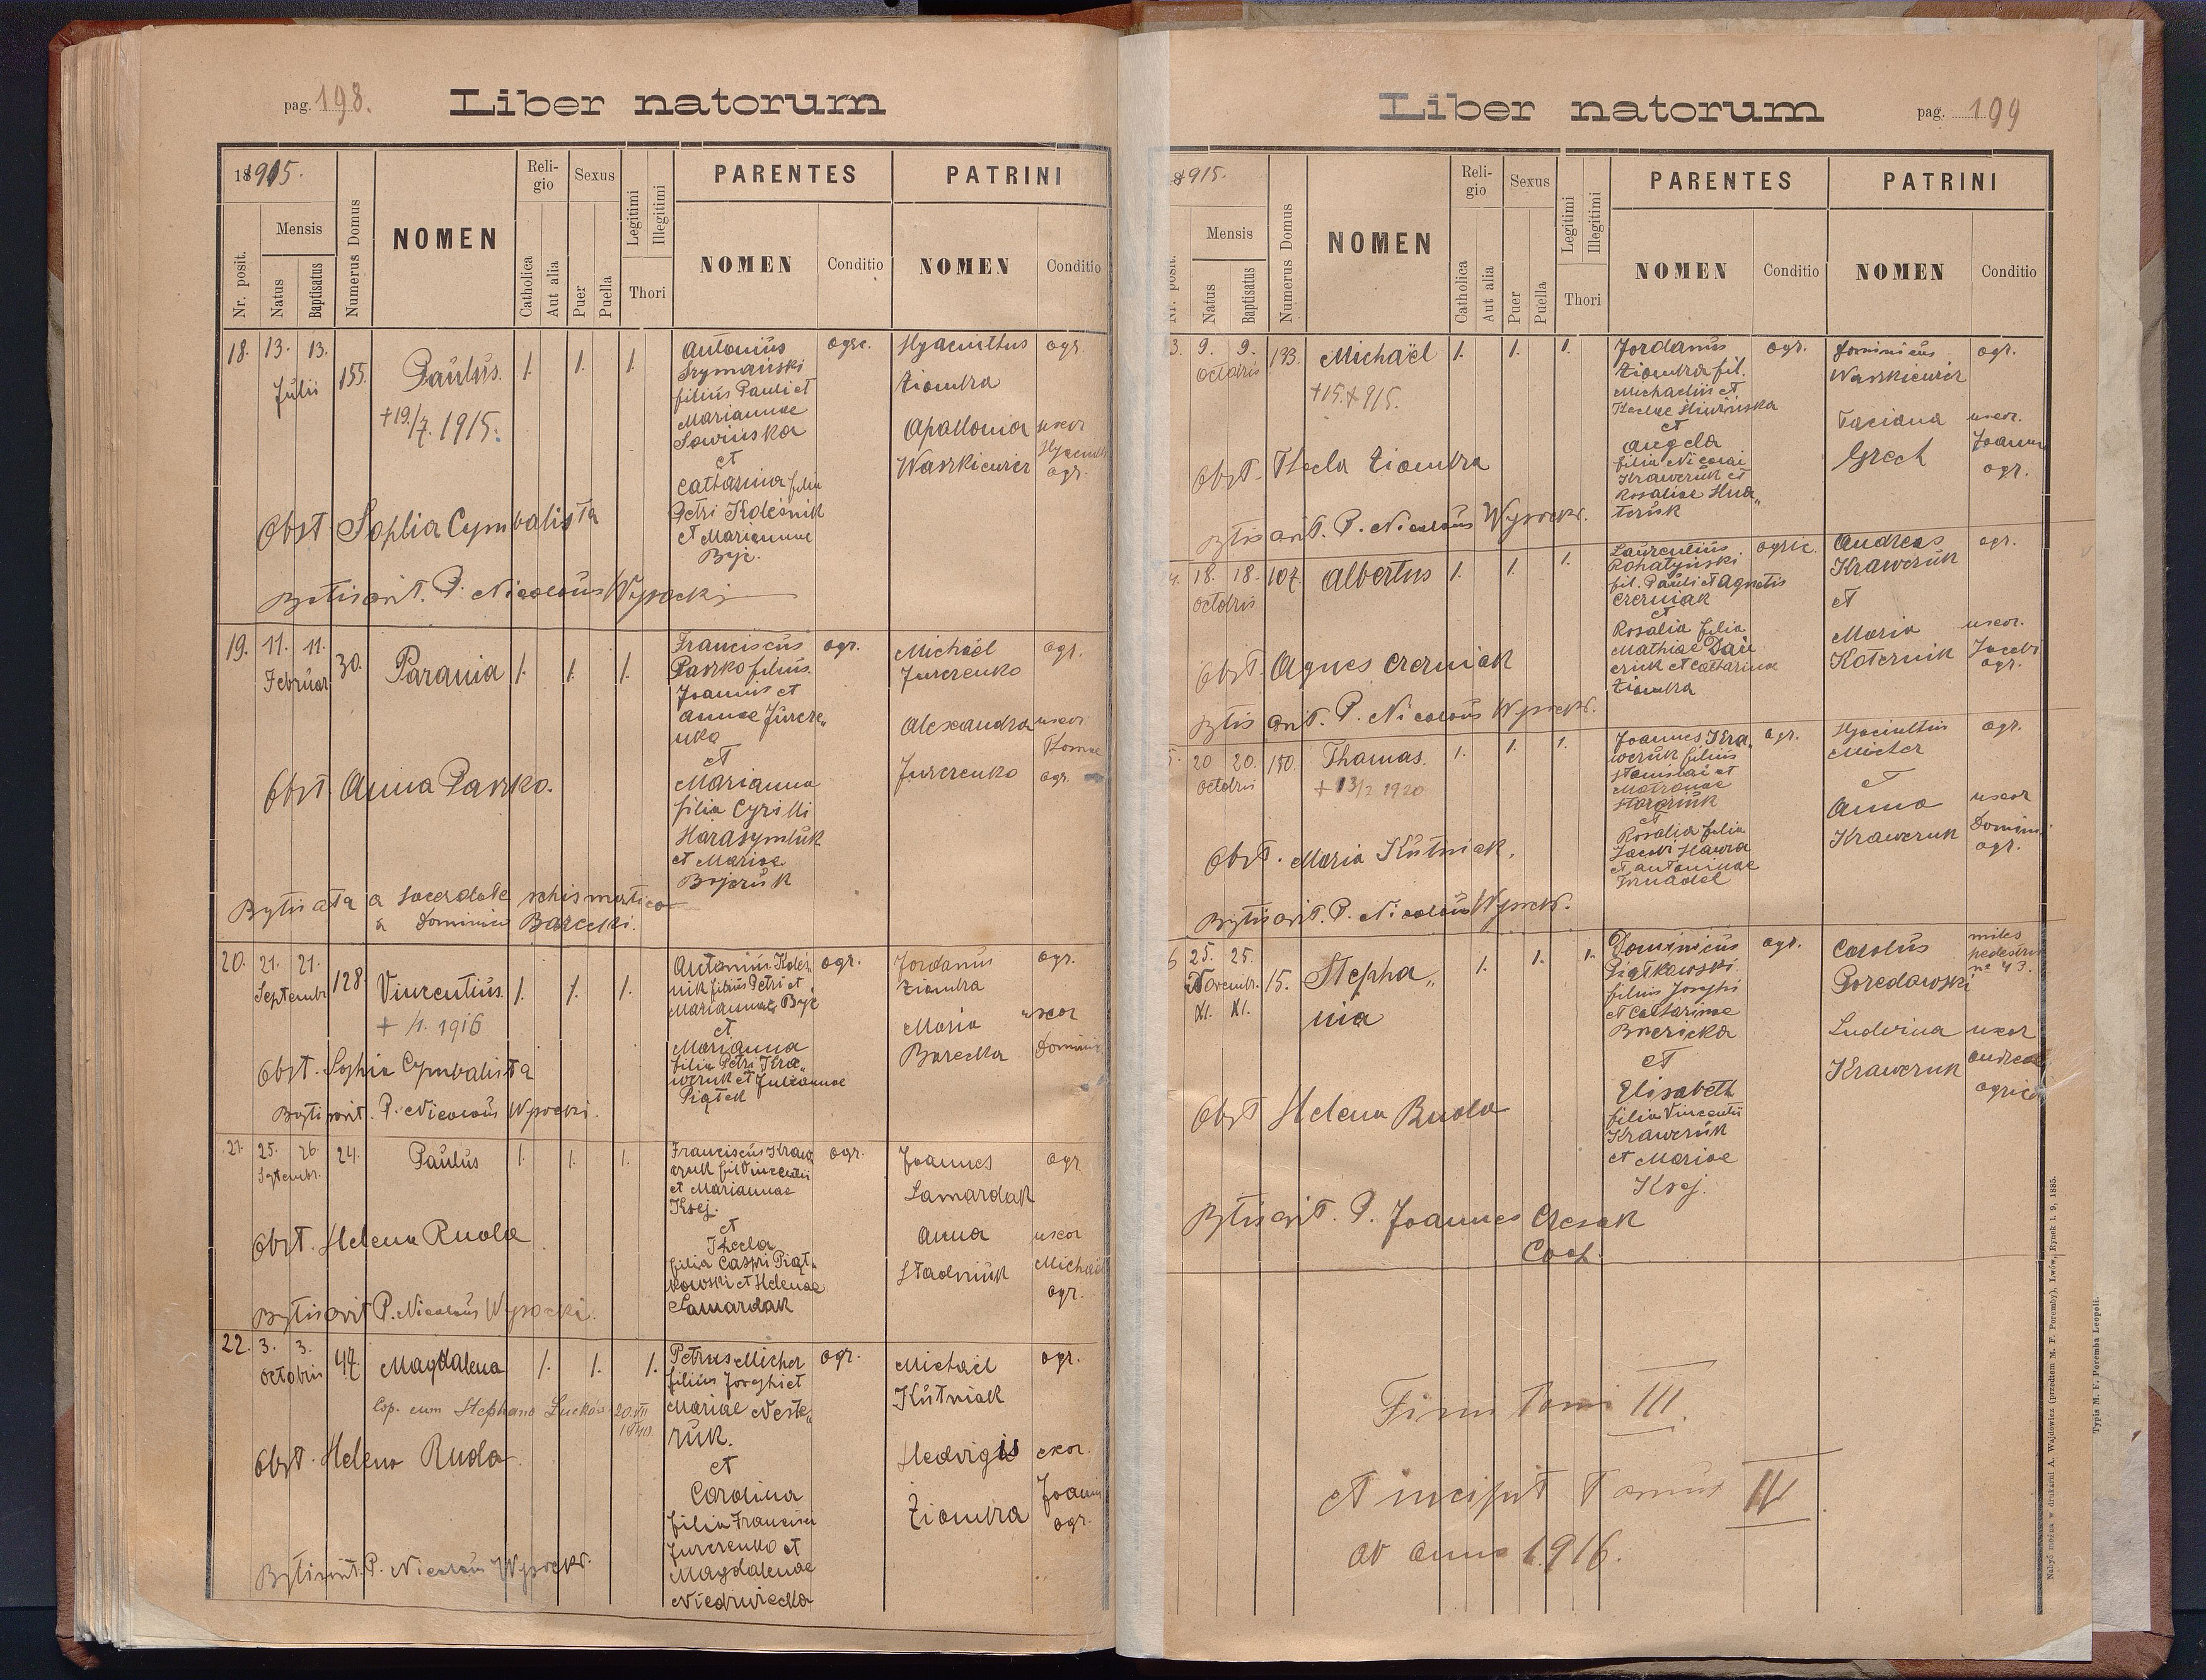 pag. 198.
Liber natorum
1915.
Mensis
Nr. posit.
Natus
Baptisatus
Numerus Domus
NOMEN
Reli-
gio
Catholica
Aut alia
Sexus
Puer
Puella
Legitimi
Illegitimi
Thori
PARENTES
NOMEN
Conditio
PATRINI
NOMEN
Conditio
18. 13. 13.
Julii
155.
Paulus.
1. 1. 1.
+ 19./7. 1915.
Antonius
Szymański
filius Pauli et
Mariannae
Sawińska
et
Catharina filia
Petri Koleśnik
et Mariannae
Być.
agr.
Hyacinthus
Ziombra
agr.
Apallonia
Waszkiewicz
uxor
agr.
Obst Sophia Cymbalista
Bptisavit. P. Nicolaus Wysocki
19. 11. 11.
Februar
30.
Parania
1. 1. 1.
Franciscus
Paszko filius
Joannis et
Annae Jurcze„
nko
et
Marianna
filia Cyrilli
Harasymluk
et Mariae
Bojczuk
agr.
Michaël
Jurczenko
agr.
Alexandra
Jurczenko
uxor
Thomae
agr.
Obst Anna Paszko.
Bptisata a sacerdote schismatico
a Dominico Barecki.
20. 21. 21.
Septembr.
128
Vincentius.
1. 1. 1.
+ /1. 1916
Antonius Koleś
nik filius Petri et
Mariannae Być
et
Marianna
filia Petri Kra„
wczuk et Juliannae
Piątek
agr.
Jordanus
Ziombra
agr.
Maria
Barecka
uxor
Dominic.
Obst. Sophia Cymbalista
Bptisavit. P. Nicolaus Wysocki.
21. 25. 26.
Septembr.
24.
Paulus
1. 1. 1.
Franciscus Kraw
czuk fil Vincentii
et Mariannae
Ksej.
et
Thecla
filia Caspri Piąt„
kowski et Helenae
Samardak
agr.
Joannes
Samardak
agr
Anna
Stadniuk
uxor
Michaël
agr.
Obst. Helena Ruda
Bptisavit P. Nicolaus Wysocki.
22. 3. 3.
Octobris
47.
Magdalena
1. 1. 1.
Cop. cum Stephano 20.VII
1940.
Petrus Micher
filius Josephi et
Mariae Neste„
ruk.
et
Carolina
filia Francisci
Jurczenko et
Magdalenae
Niedzwiecka
agr.
Michaël
Kutniak
agr.
Hedvigis
Ziombra
uxor.
Joannis
agr.
Obst. Helena Ruda
Bptisavit. P. Nicolaus Wysocki.
Liber natorum
pag. 199
1915.
Mensis
Nr. posit.
Natus
Baptisatus
Numerus Domus
NOMEN
Reli-
gio
Catholica
Aut alia
Sexus
Puer
Puella
Legitimi
Illegitimi
Thori
PARENTES
NOMEN
Conditio
PATRINI
NOMEN
Conditio
3. 9. 9.
Octobris
193.
Michaël
1. 1. 1.
Jordanus
Ziombra fil.
Michaelis et
Theclae
et
Angela
filia Nicolai
Krawczuk et
Rosaliae Hna„
teruk
agr.
Dominicus
Waszkiewicz
agr.
Taciana
Grech
uxor.
Joannis
agr.
Obst. Thecla Ziombra
Bptisavit. P. Nicolaus Wysocki.
4. 18. 18.
Octobris
107.
Albertus
1. 1. 1.
Laurentius
Rohatyński
fil. Pauli et Agnetis
Czerniak
et
Rosalia filia
Mathiae
et Catharinae
Ziombra
agric.
Andreas
Krawczuk
et
agr.
Maria
Koternik
uxor.
Jacobi
agr.
Obst. Agnes Czerniak
Bptisavit. P. Nicolaus Wysocki.
5. 20 20.
Octobris
150.
Thomas.
1. 1. 1.
+ 13/2 1920
Joannes Kra„
wczuk filius
Stanislai et
Matronae
et
Rosalia filia
Jacobi Hawra
et Antoninae
agr.
Hyacinthus
Micher
et
agr.
Anna
Krawczuk
uxor
Domini.
agr.
Obst. Maria Kutniak.
Bptisavit. P. Nicolaus Wysocki.
6 25. 25.
Novembr.
XI. XI.
15.
Stepha„
nia
1. 1. 1.
Dominicus
Piątkowski
filius Josephi
et Catharinae
et
Elisabeth
filia Vincentii
Krawczuk
et Mariae
Ksej.
agr.
Carolus
Poredowski
miles
pedestris
no 43.
Ludvina
Krawczuk
uxor
Andreae
agric.
Obst Helena Ruda
Bptisavit. P. Joannes Czesak
Coop.
Finis Tomi III.
et incipit Tomus IV
ab anno 1916.
Nabyć można w drukarni A. Wajdowicz (przedtem M. F. Poremby), Lwów, Rynek l. 9, 1885.
Typis M. F. Poremba Leopoli.